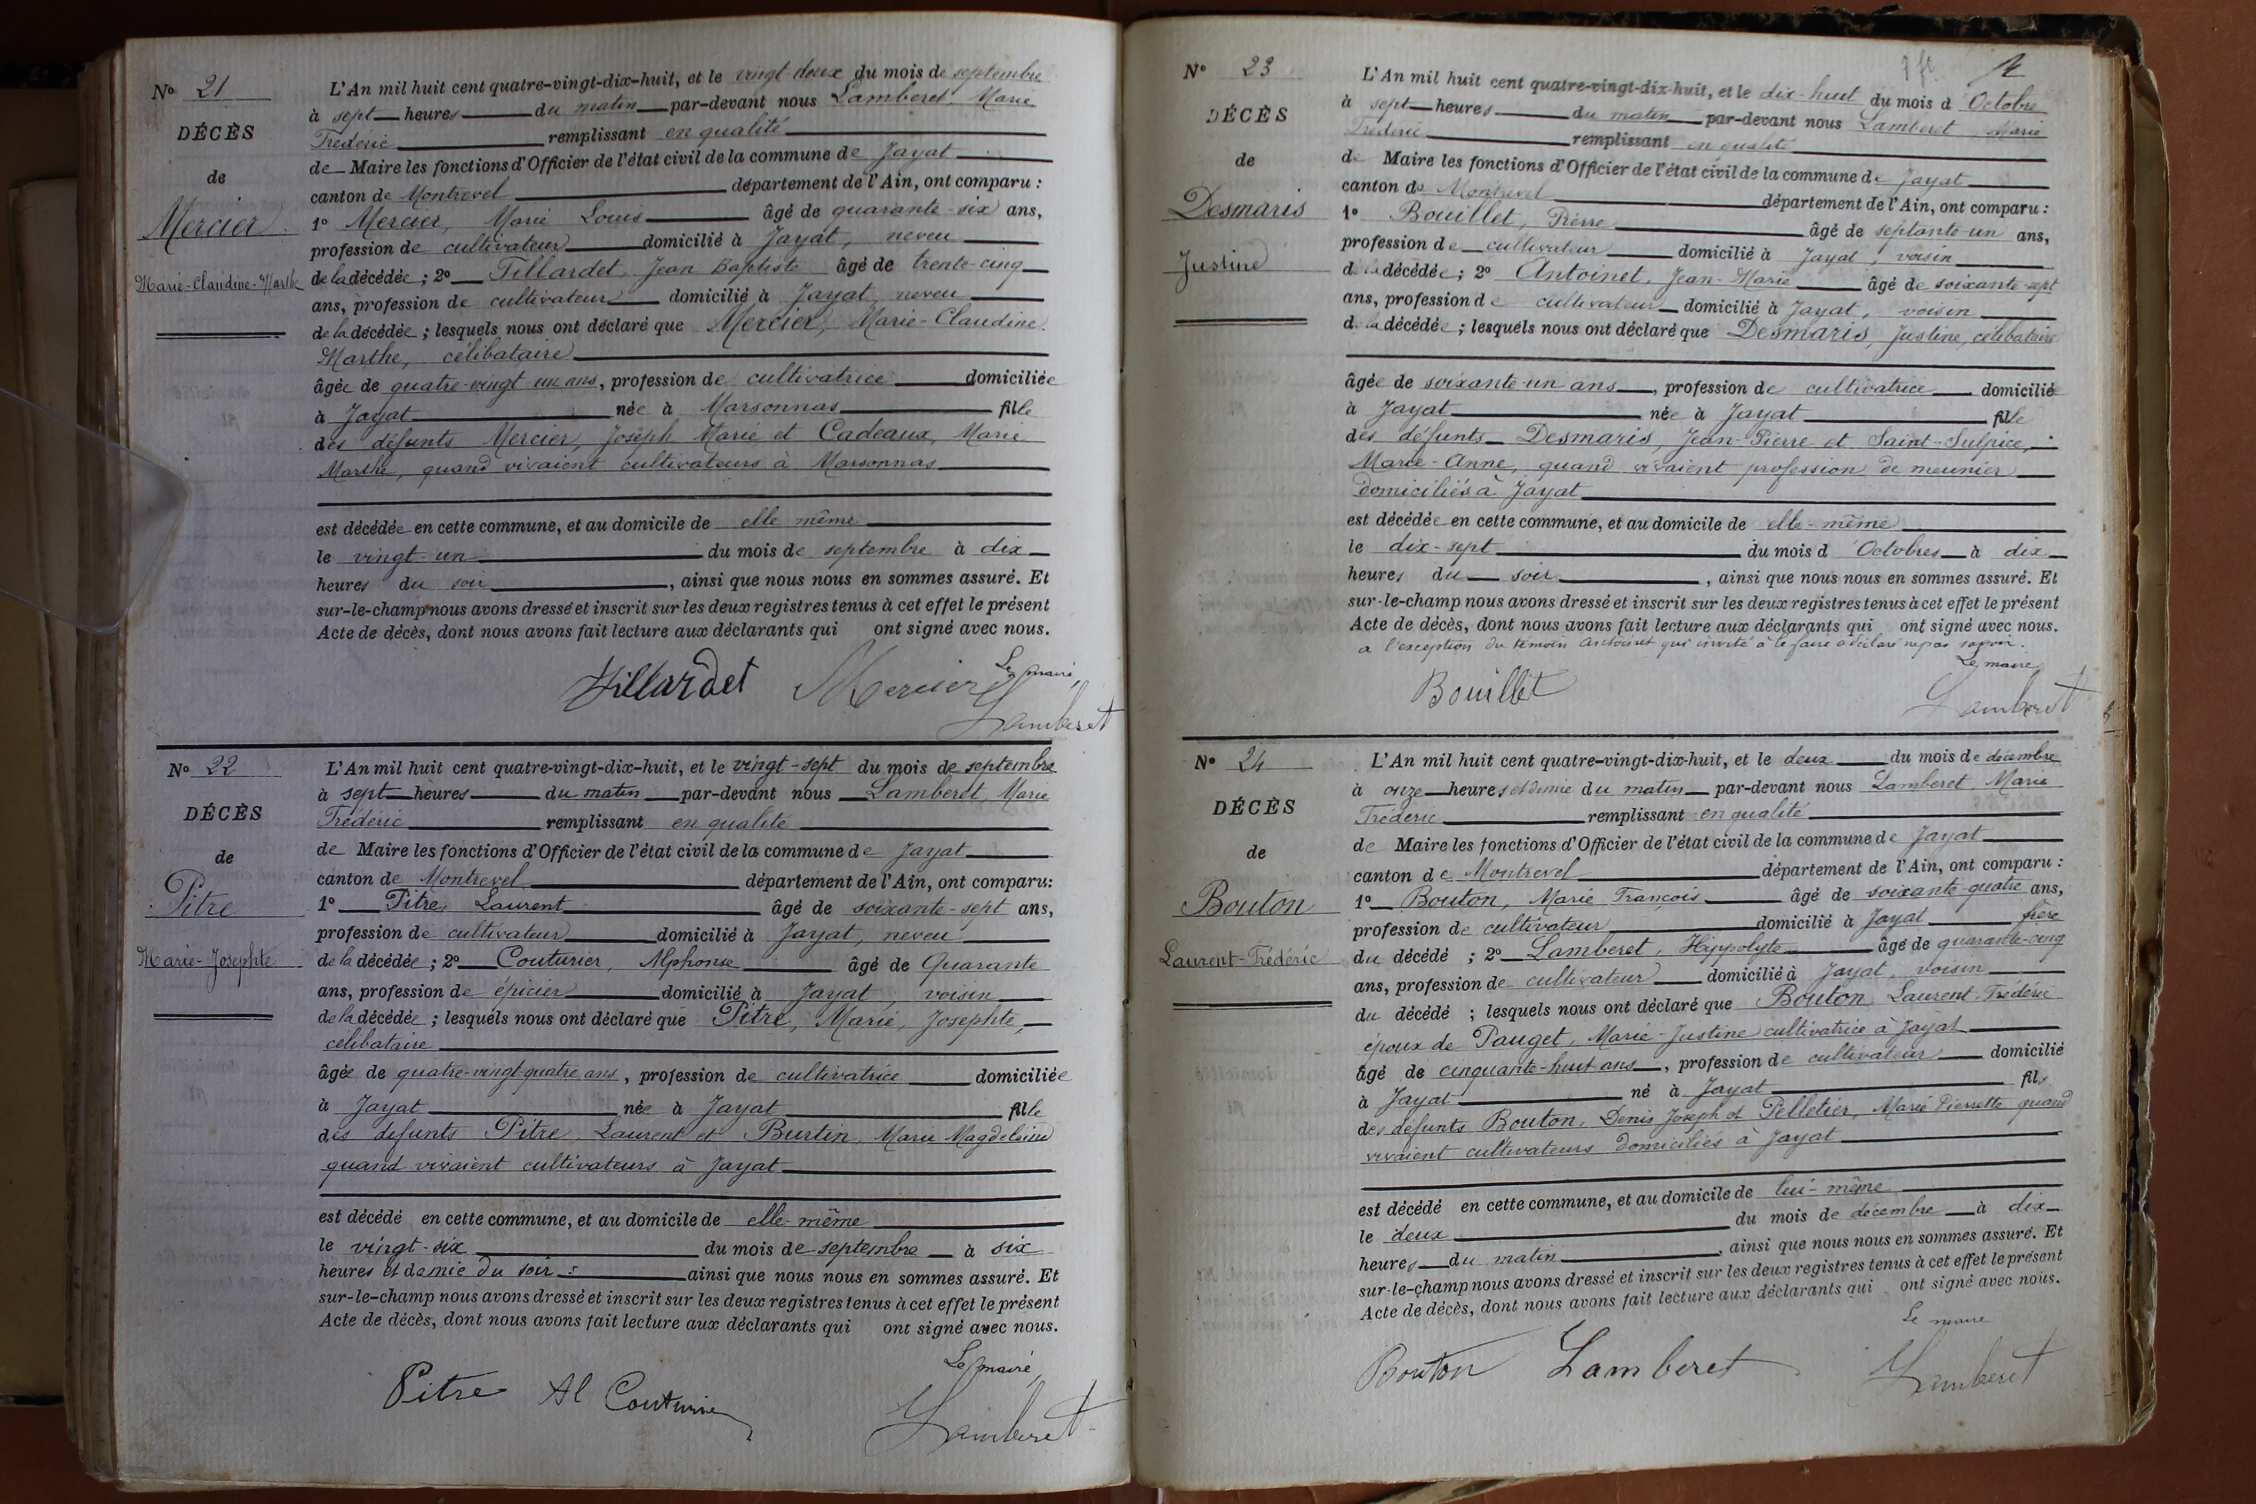 N° 21
DÉCÈS
de
Mercier
Marie-Claudine-Marthe
L'An mil huit cent quatre-vingt-dix-huit, et le vingt-deux du mois de septembre
à sept heures du matin par-devant nous Lamberet, Marie
Frédéric remplissant en qualité
de Maire les fonctions d'Officier de l'état civil de la commune de Jayat
canton de Montrevel département de l'Ain, ont comparu :
1° Mercier, Marie Louis âgé de quarante-six ans,
profession de cultivateur domicilié à Jayat, neveu
de la décédée ; 2° Tillardet, Jean Baptiste âgé de trente-cinq
ans, profession de cultivateur domicilié à Jayat, neveu
de la décédée ; lesquels nous ont déclaré que Mercier, Marie-Claudine
Marthe, célibataire
âgée de quatre-vingt-un ans, profession de cultivatrice domiciliée
à Jayat née à Marsonnas fille
des défunts Mercier, Joseph Marie et Cadeaux, Marie
Marthe, quand vivaient cultivateurs à Marsonnas
est décédée en cette commune, et au domicile de elle même
le vingt-un du mois de septembre à dix
heures du soir, ainsi que nous nous en sommes assuré. Et
sur-le-champ nous avons dressé et inscrit sur les deux registres tenus à cet effet le présent
Acte de décès, dont nous avons fait lecture aux déclarants qui ont signé avec nous.
Le maire,
Tillardet Mercier
Lamberet
N° 22
DÉCÈS
de
Pitre
Marie-Josephte
L'An mil huit cent quatre-vingt-dix-huit, et le vingt-sept du mois de septembre
à sept heures du matin par-devant nous Lamberet, Marie
Frédéric remplissant en qualité
de Maire les fonctions d'Officier de l'état civil de la commune de Jayat
canton de Montrevel département de l'Ain, ont comparu:
1° Pitre, Laurent âgé de soixante-sept ans,
profession de cultivateur domicilié à Jayat, neveu
de la décédée ; 2° Couturier, Alphonse âgé de Quarante
ans, profession de épicier domicilié à Jayat, voisin
de la décédée ; lesquels nous ont déclaré que Pitre, Marie, Josephte,
célibataire
âgée de quatre-vingt-quatre ans, profession de cultivatrice domiciliée
à Jayat née à Jayat fille
des defunts Pitre, Laurent et Burtin, Marie Magdeleine
quand vivaient cultivateurs à Jayat
est décédé en cette commune, et au domicile de elle-même
le vingt-six du mois de septembre à six
heures et demie du soir : ainsi que nous nous en sommes assuré. Et
sur-le-champ nous avons dressé et inscrit sur les deux registres tenus à cet effet le présent
Acte de décès, dont nous avons fait lecture aux déclarants qui ont signé avec nous.
Le maire,
Pitre Al Couturier
Lamberet
N° 23
DÉCÈS
de
Desmaris
Justine
L'An mil huit cent quatre-vingt-dix-huit, et le dix-huit du mois d Octobre
à sept heures du matin par-devant nous Lamberet, Marie
Frédéric remplissant en qualité
de Maire les fonctions d'Officier de l'état civil de la commune de Jayat
canton de Montrevel département de l'Ain, ont comparu :
1° Bouillet, Pierre âgé de septante-un ans,
profession de cultivateur domicilié à Jayat, voisin
de la décédée ; 2° Antoinet, Jean-Marie âgé de soixante-sept
ans, profession de cultivateur domicilié à Jayat, voisin
de la décédée ; lesquels nous ont déclaré que Desmaris, Justine, célibataire
âgée de soixante-un ans, profession de cultivatrice domicilié
à Jayat née à Jayat fille
des défunts Desmaris, Jean-Pierre et Saint-Sulpice,
Marie-Anne, quand vivaient profession de meunier
domiciliés à Jayat
est décédée en cette commune, et au domicile de elle-même
le dix-sept du mois d Octobres à dix
heures du soir, ainsi que nous nous en sommes assuré. Et
sur-le-champ nous avons dressé et inscrit sur les deux registres tenus à cet effet le présent
Acte de décès, dont nous avons fait lecture aux déclarants qui ont signé avec nous.
a l'exception du témoin Antoinet qui invité à le faire a déclaré ne pas savoir.
Le maire
Bouillet
Lamberet
N° 24
DÉCÈS
de
Bouton
Laurent-Frédéric
L'An mil huit cent quatre-vingt-dix-huit, et le deux du mois de décembre
à onze heures et demie du matin par-devant nous Lamberet, Marie
Frédéric remplissant en qualité
de Maire les fonctions d'Officier de l'état civil de la commune de Jayat
canton de Montrevel département de l'Ain, ont comparu :
1° Bouton, Marie François âgé de soixante-quatre ans,
profession de cultivateur domicilié à Jayat frère
du décédé ; 2° Lamberet, Hippolyte âgé de quarante-cinq
ans, profession de cultivateur domicilié à Jayat, voisin
du décédé ; lesquels nous ont déclaré que Bouton Laurent-Frédéric
époux de Pauget, Marie-Justine cultivatrice à Jayat
âgé de cinquante-huit ans, profession de cultivateur domicilié
à Jayat né à Jayat fils
des defunts Bouton, Denis Joseph et Pelletier, Marie Pierrette quand
vivaient cultivateurs domiciliés à Jayat
est décédé en cette commune, et au domicile de lui-même
le deux du mois de décembre à dix
heures du matin, ainsi que nous nous en sommes assuré. Et
sur-le-champ nous avons dressé et inscrit sur les deux registres tenus à cet effet le présent
Acte de décès, dont nous avons fait lecture aux déclarants qui ont signé avec nous.
Le maire
Bouton Lamberet
Lamberet